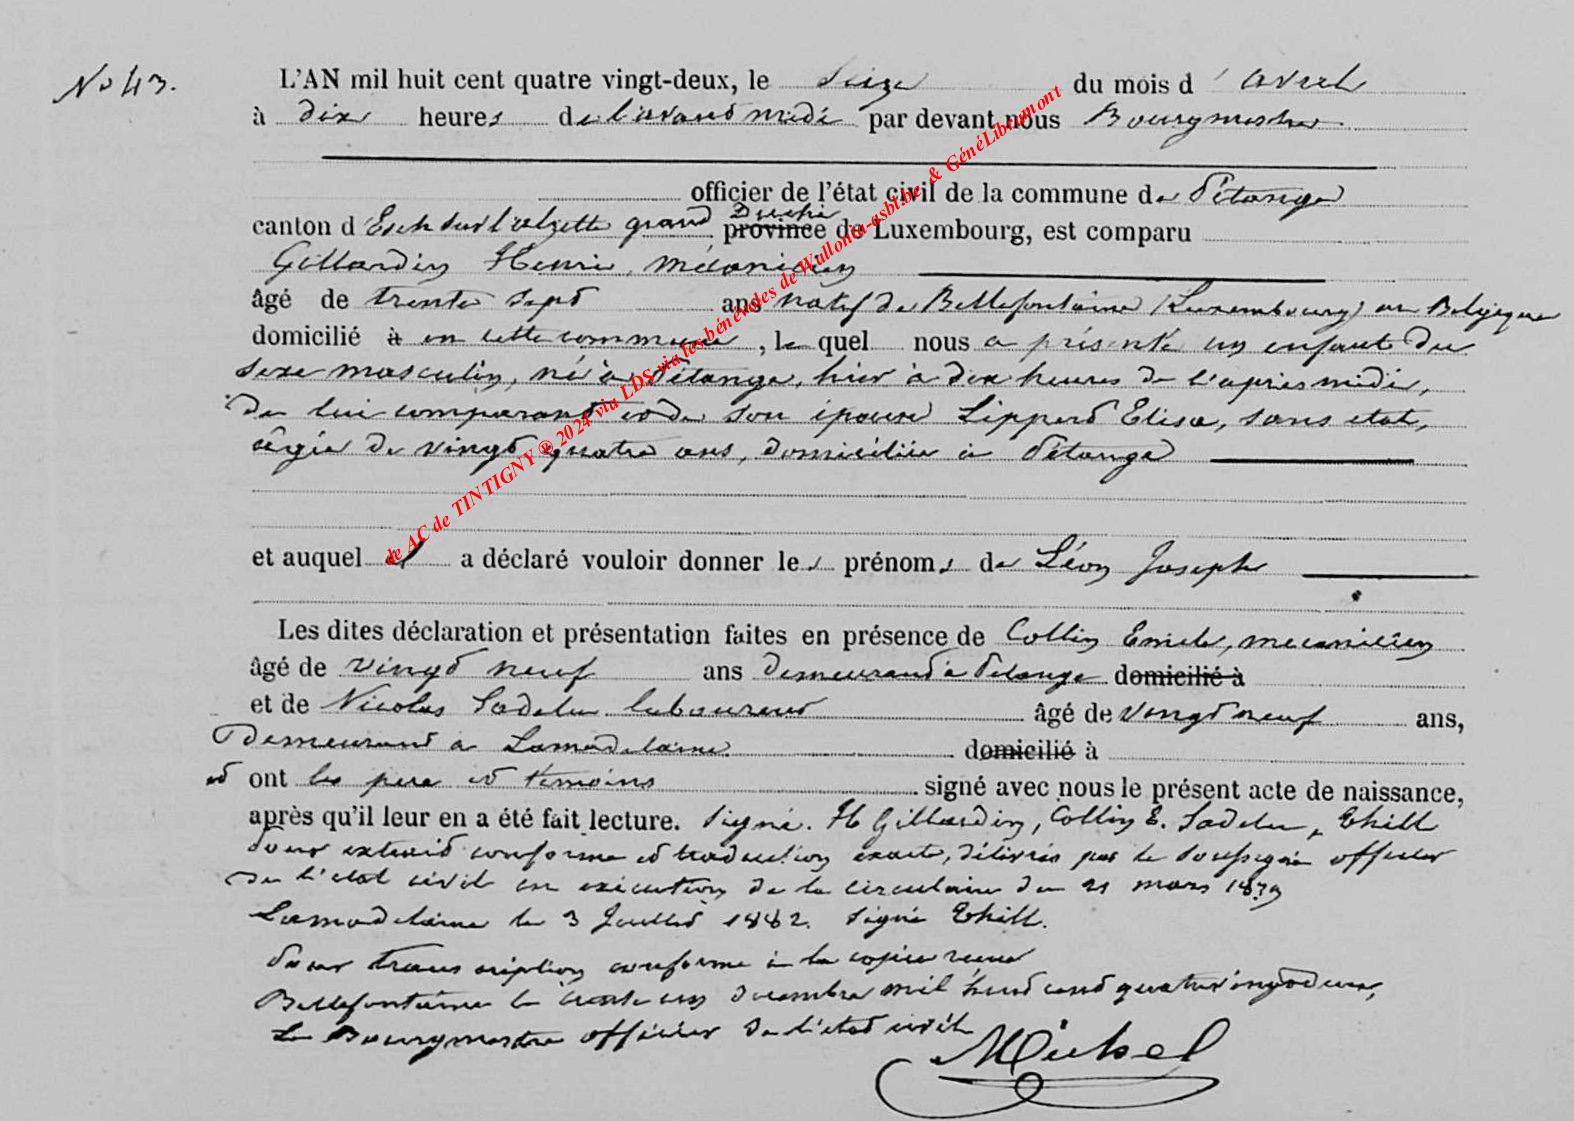 No 43.
L'AN mil huit cent quatre vingt-deux, le seize du mois d'avril
à dix heures de l'avant midi par devant nous Bourgmestre
officier de l'état civil de la commune de Pétange
canton d'Esch sur l'alzette grand Duché province de Luxembourg, est comparu
Gillardin Henri, mécanicien
âgé de trente sept ans natif de Bellefontaine (Luxembourg) en Belgique
domicilié à en cette commune, lequel nous a présenté un enfant du
sexe masculin, né à Pétange, hier à dix heures de l'après midi,
de lui comparant et de son épouse Lippert Elisa, sans etat,
agée de vingt quatre ans, domiciliée à Pétange
et auquel il a déclaré vouloir donner les prénoms de Léon Joseph
Les dites déclaration et présentation faites en présence de Collin Emile, mecanicien
âgé de vingt neuf ans demeurant à Petange domicilié à
et de Nicolas Sadeler laboureur âgé de vingt neuf ans,
Demeurant à Lamadelaine domicilié à
et ont les pere et témoins signé avec nous le présent acte de naissance,
après qu'il leur en a été fait lecture. Signé. H Gillardin, Collin E. Sadeler, Thill
Pour extrait conforme et traduction exacte, délivrés par le soussigné officier
de l'état civil en exécution de la circulaire du 21 mars 1879
Lamadelaine le 3 Juillet 1882. Signé Thill.
Pour transcription conforme à la copie recue
Bellefontaine le trente un decembre mil huit cent quatrevingt deux,
Le Bourgmestre officier de l'état civil
Michel
de AC de TINTIGNY ® 2024 via LDS via les bénévoles de Wallonia-asbl.be & GénéLibramont